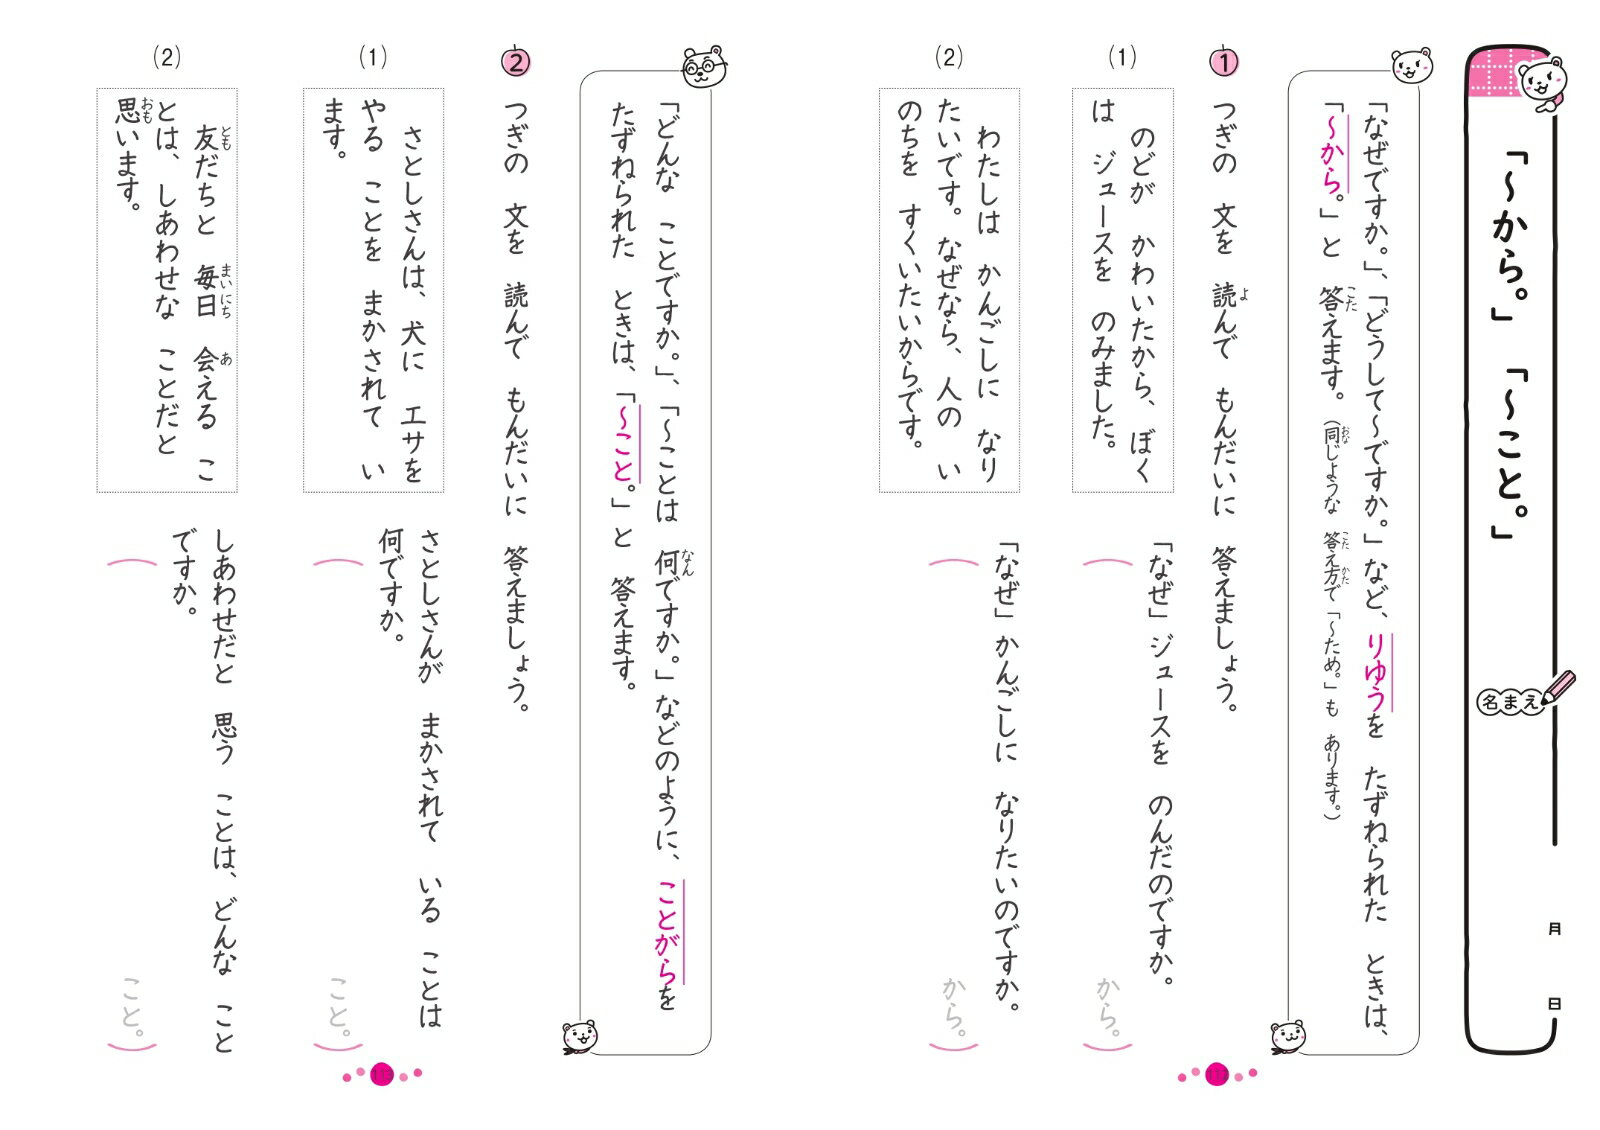 「～から。」「～こと。」
名まえ
月 日
「なぜですか。」、「どうして～ですか。」など、りゆうを たずねられた ときは、
「～から。」と 答えます。(同じような 答え方で「～ため。」も あります。)
こた
おな
こた
かた
1 つぎの 文を 読んで もんだいに 答えましょう。
よ
(1)
のどが かわいたから、ぼく
は ジュースを のみました。
「なぜ」ジュースを のんだのですか。
( から。)
(2)
わたしは かんごしに なり
たいです。なぜなら、人の い
のちを すくいたいからです。
「なぜ」かんごしに なりたいのですか。
( から。)
112
「どんな ことですか。」、「～ことは 何ですか。」などのように、ことがらを
なん
たずねられた ときは、「～こと。」と 答えます。
2 つぎの 文を 読んで もんだいに 答えましょう。
(1)
さとしさんは、犬に エサを
やる ことを まかされて い
ます。
さとしさんが まかされて いる ことは
何ですか。
( こと。)
(2)
友だちと 毎日 会える こ
とも
まいにち
あ
とは、しあわせな ことだと
思います。
おも
しあわせだと 思う ことは、どんな こと
ですか。
( こと。)
113